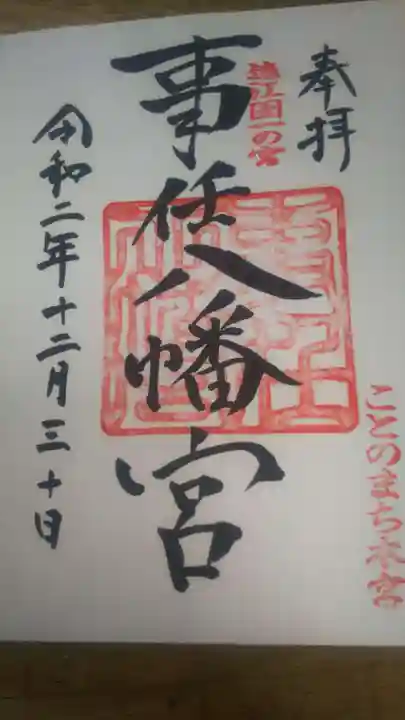 奉拝
遠江国一の宮
事任八幡宮
令和二年十二月三十日
ことのまち本宮